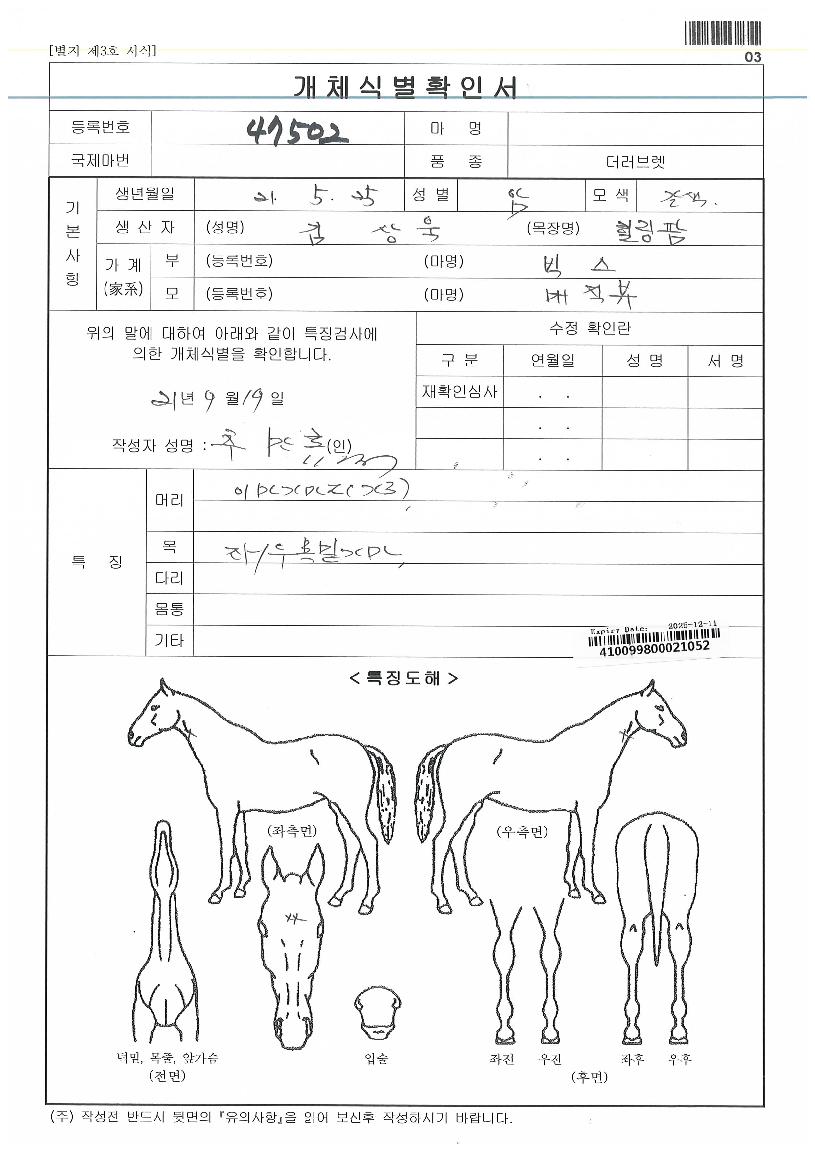 [별지 제3호 서식]
03
개체식별확인서
등록번호 47502 마 명
국제마번 품 종 더러브렛
기본사항
생년월일 21. 5. 25 성 별 암 모 색 갈색.
생 산 자 (성명) 김 상 욱 (목장명) 힐링팜
가 계 (家系) 부 (등록번호) (마명) 빅 스
모 (등록번호) (마명)
위의 말에 대하여 아래와 같이 특징검사에
의한 개체식별을 확인합니다.
21년 9월 19일
작성자 성명 : (인)
수정 확인란
구 분 연월일 성 명 서 명
재확인심사 . .
. .
. .
특 징
머리
목
다리
몸통
기타
Expiry Date: 2025-12-11
410099800021052
< 특징도해 >
(좌측면) (우측면)
녀밑, 목줄, 앞가슴
(전면)
입술
좌진 우진 좌후 우후
(후면)
(주) 작성전 반드시 뒷면의 『유의사항』을 읽어 보신후 작성하시기 바랍니다.